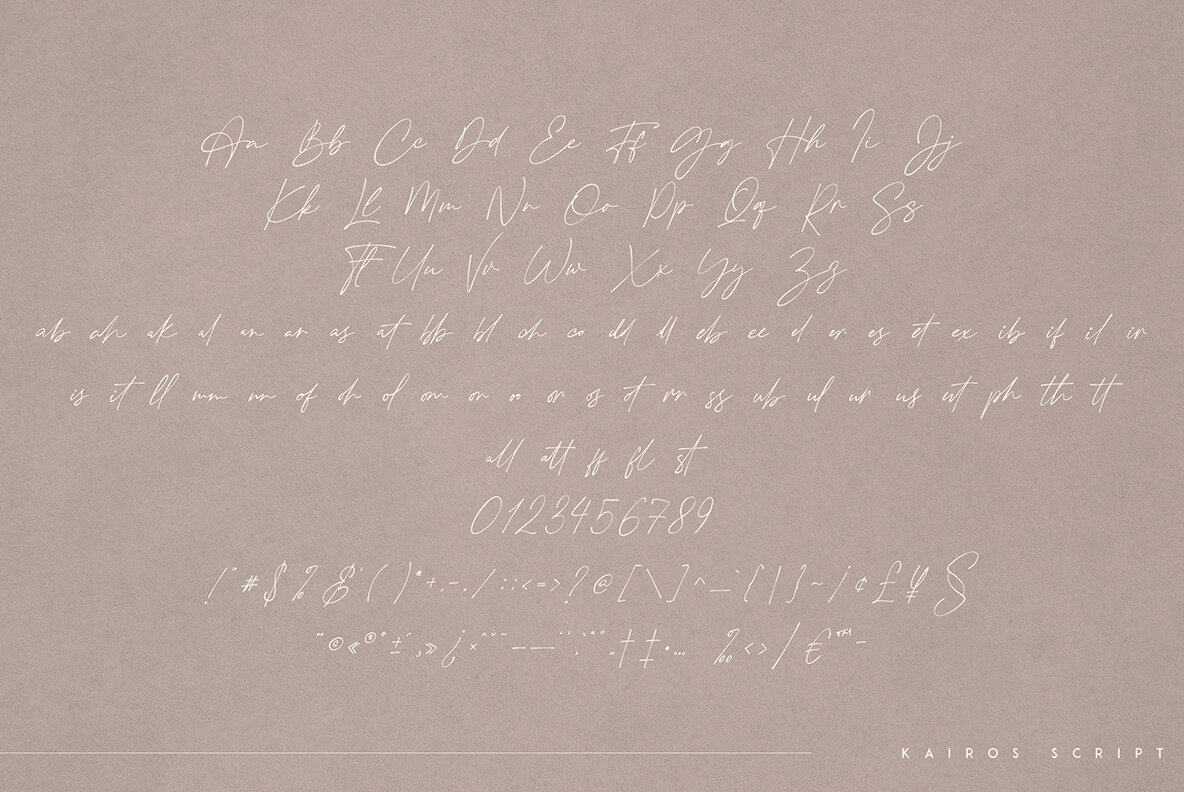 Aa Bb Cc Dd Ee Ff Gg Hh Ii Jj
Kk Ll Mm Nn Oo Pp Qq Rr Ss
Tt Uu Vv Ww Xx Yy Zz
ab ah ak al an ar as at bb bl ch co dd dl eb ee el er es et ex ib if il ir
is it ll mm nn of oh ol om on oo or os ot rr ss ub ul ur us ut ph th tt
all att ff fl st
0123456789
!"#$%&'()*+,-./:;<=>?@[\]^_`{|}~¡¢£¥§
¨©«®°±´¸»¿×ˆˇ˜–—‘’‚“”„†‡•…‰‹›⁄€™−
KAIROS SCRIPT